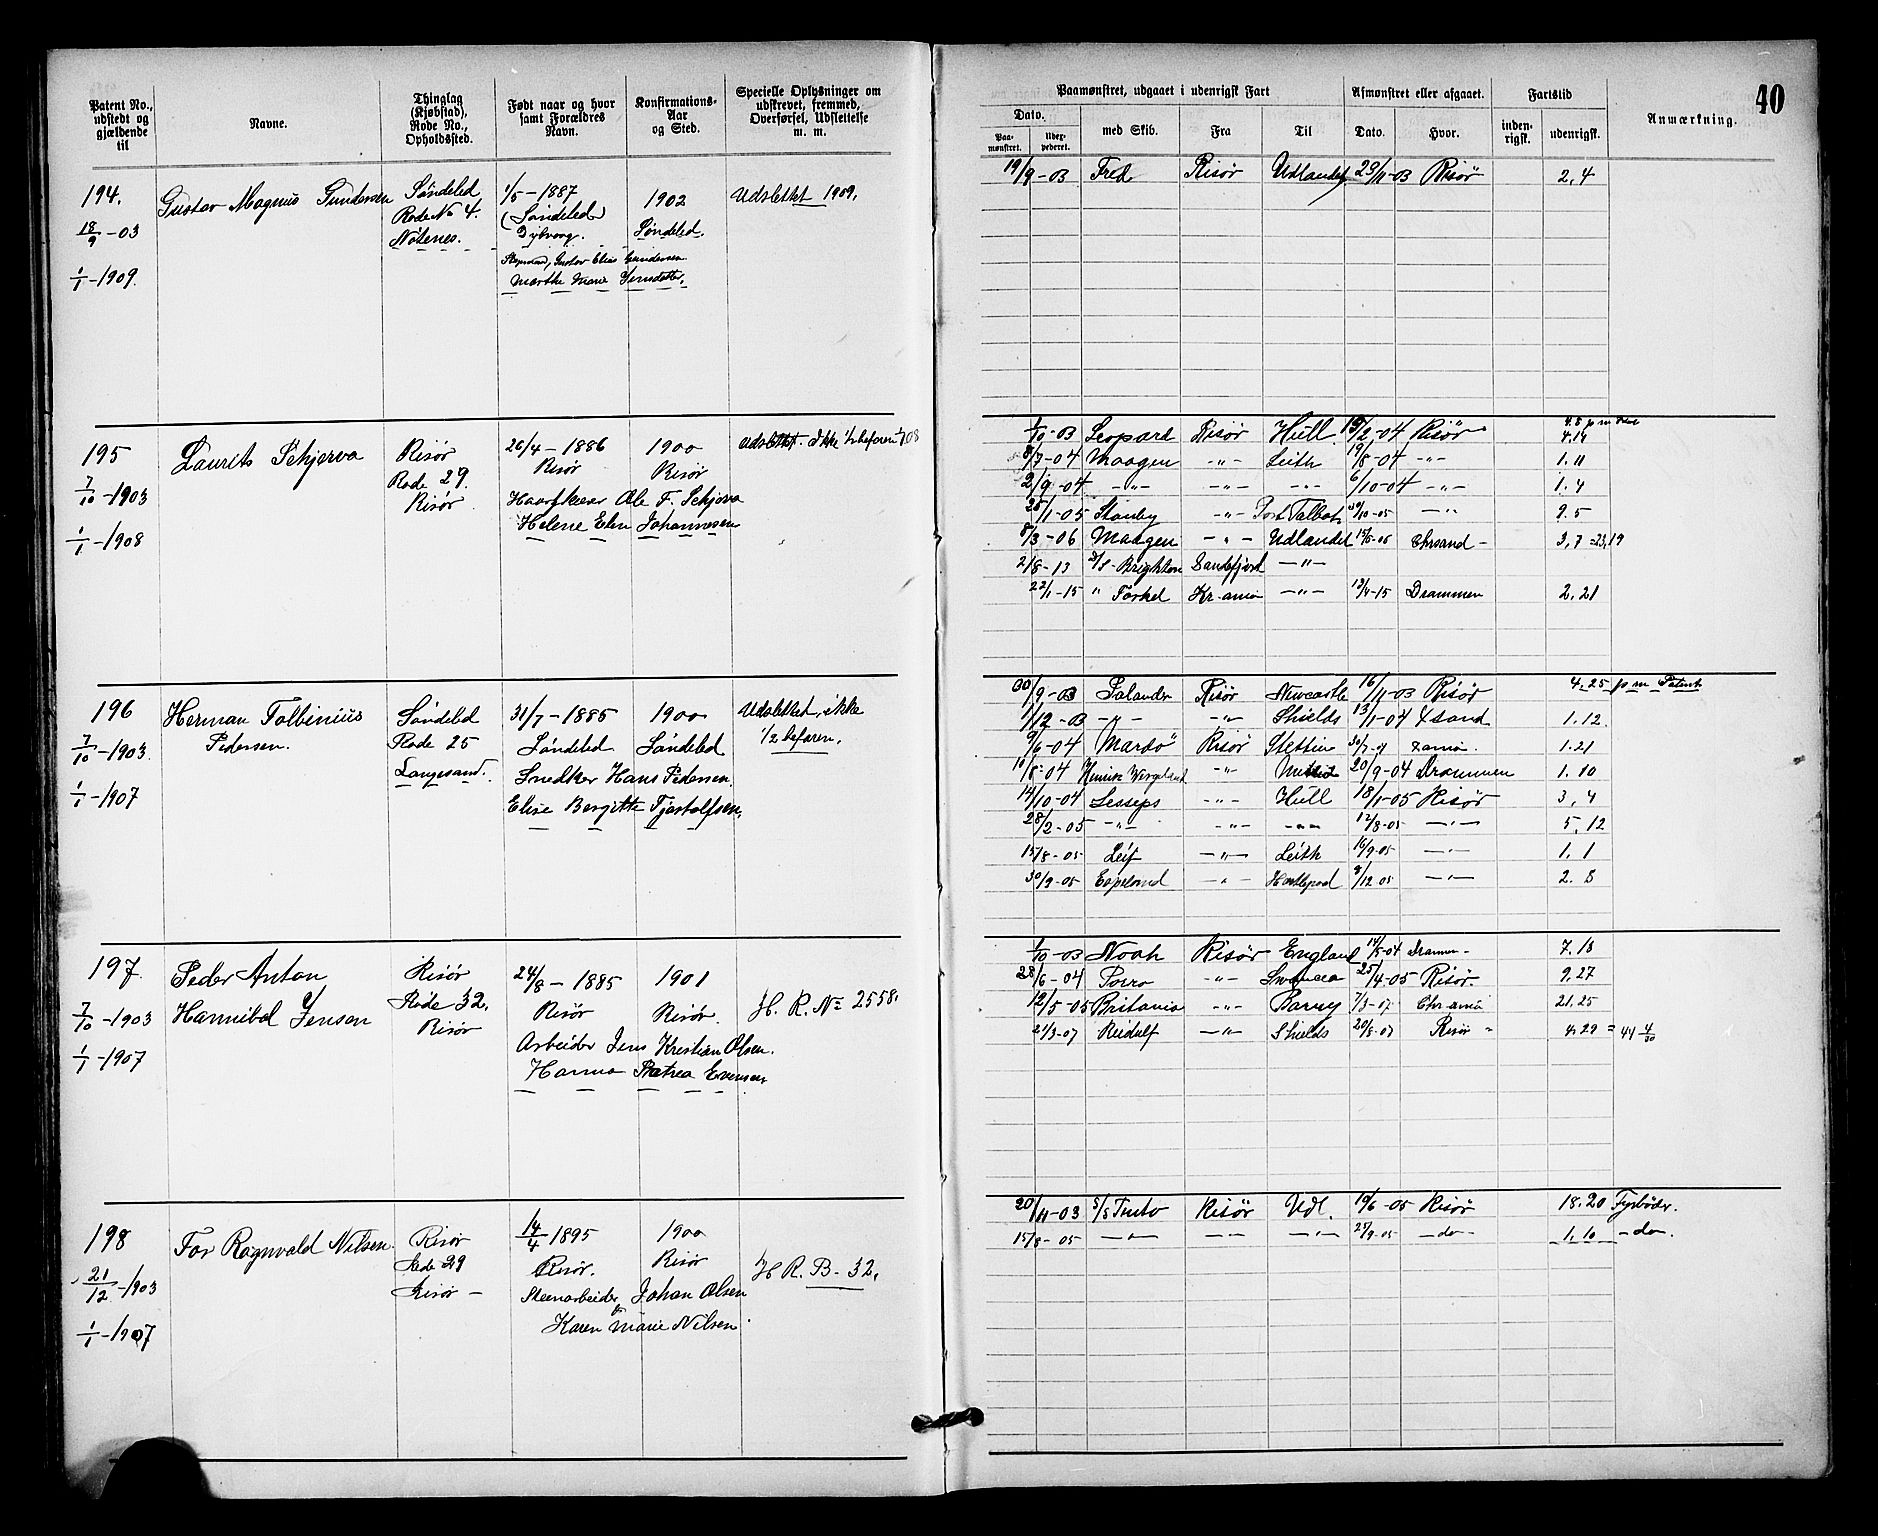 Patent No., udstedt og gjældende til
Navne.
Thinglag (Kjøbstad), Rode No., Opholdssted.
Født naar og hvor samt Forældres Navn.
Konfirmations-Aar og Sted.
Specielle Oplysninger om udskrevet, fremmed, Overførsel, Udslettelse m. m.
Paamønstret, udgaaet i udenrigsk Fart
Dato.
Paa-mønstret.
Udex-pederet.
med Skib.
Fra
Til
Afmønstret eller afgaaet.
Dato.
Hvor.
Fartstid
inden-rigsk.
udenrigsk.
Anmærkning.
40
194.
18/9 -03
1/1 -1909.
Gustav Magnus Gundersen
Søndeled
Rode No 4.
Nøtenes.
1/5 - 1887
(Søndeled)
Dybvaag.
Gustav Elias Gundersen
Marthe Marie Jensdatter.
1902
Søndeled.
Udslettet 1909.
19/9 -03 Fred Risör Udlandet 23/11-03 Risör 2,4
195
7/10 -1903
1/1 -1908
Laurits Schjerva
Risör
Rode 29.
Risör
26/4 - 1886
Risör
Haarskærer Ole F. Schjerva
Helene Elin Johannesen
1900
Risör
Udslettet. Ikke 1/2 befaren 1/1 08
4.8 p m
1/10 -03 Leopard Risör Hull 19/2-04 Risör 4.14
8/7-04 Maagen -"- Leith 19/8-04 -"- 1.11
2/9-04 -"- -"- -"- 6/10-04 -"- 1.4
25/1-05 Stanley -"- Port Talbot 30/10-05 -"- 9.5
8/3-06 Maagen -"- Udlandet 15/6-06 Chrsand - 3,7 = 23,19
2/8-13 S/S Brighton Sandefjord -"-
22/1-15 " Torkel Kr-ania -"- 13/4-15 Drammen 2.21
196
7/10 -1903.
1/1 -1907
Herman Tolbinius
Pedersen.
Søndeled
Rode 25
Langesand.
31/7 - 1885
Søndeled
Snedker Hans Pedersen.
Elise Bergitte Tjøstolfsen.
1900
Søndeled
Udslettet, ikke
1/2 befaren.
30/9-03 Salander Risör Newcastle 16/11-03 Risör 4.25 p m Patent
1/12-03 -"- -"- Shields 13/1-04 Xsand 1.12.
9/6-04 "Mardø" Risör Stettin 30/7-04 Xania. 1.21
10/8-04 Henrik Wergeland -"- 20/9-04 Drammen 1.10
14/10-04 Lesseps -"- Hull 18/1-05 Risör 3,4
28/2-05 -"- -"- -"- 12/8-05 -"- 5.12
15/8-05 Leif -"- Leith 16/9-05 -"- 1.1
30/9-05 Espeland -"- Hartlepool 8/12 05 -"- 2.8
197.
7/10 -1903
1/1 -1907
Peder Anton
Hannibal Jensen
Risör
Rode 32.
Risör
24/8 - 1885
Risör
Arbeider Jens Kristian Olsen.
Hanna Petrea Evensen
1901
Risör.
H. R. No 2558.
1/10 -03 Noah Risör England 14/5-04 Drammen - 7.13
28/6-04 Porro -"- Swansea 25/4-05 Risör. 9.27
12/5-05 Britania -"- Barry 7/3-07 Chr-ania 21.25
21/3-07 Rudolf -"- Shields 20/8-07 Risör " 4.29 = 44 4/30
198
21/12 -1903
1/1 -1907
Tor Ragnvald Nilsen
Risör
Rode 29
Risör -
14/4 1895
Risör.
Stenarbeider Johan Olsen
Karen Marie Nilsen.
1900
Risör
H R. B - 32.
20/11-03 S/S Tento Risör Udl. 19/6-05 Risör 18.20 Fyrbøder.
15/8-05 -"- -"- -"- 27/9-05 -do- 1.10 -do-